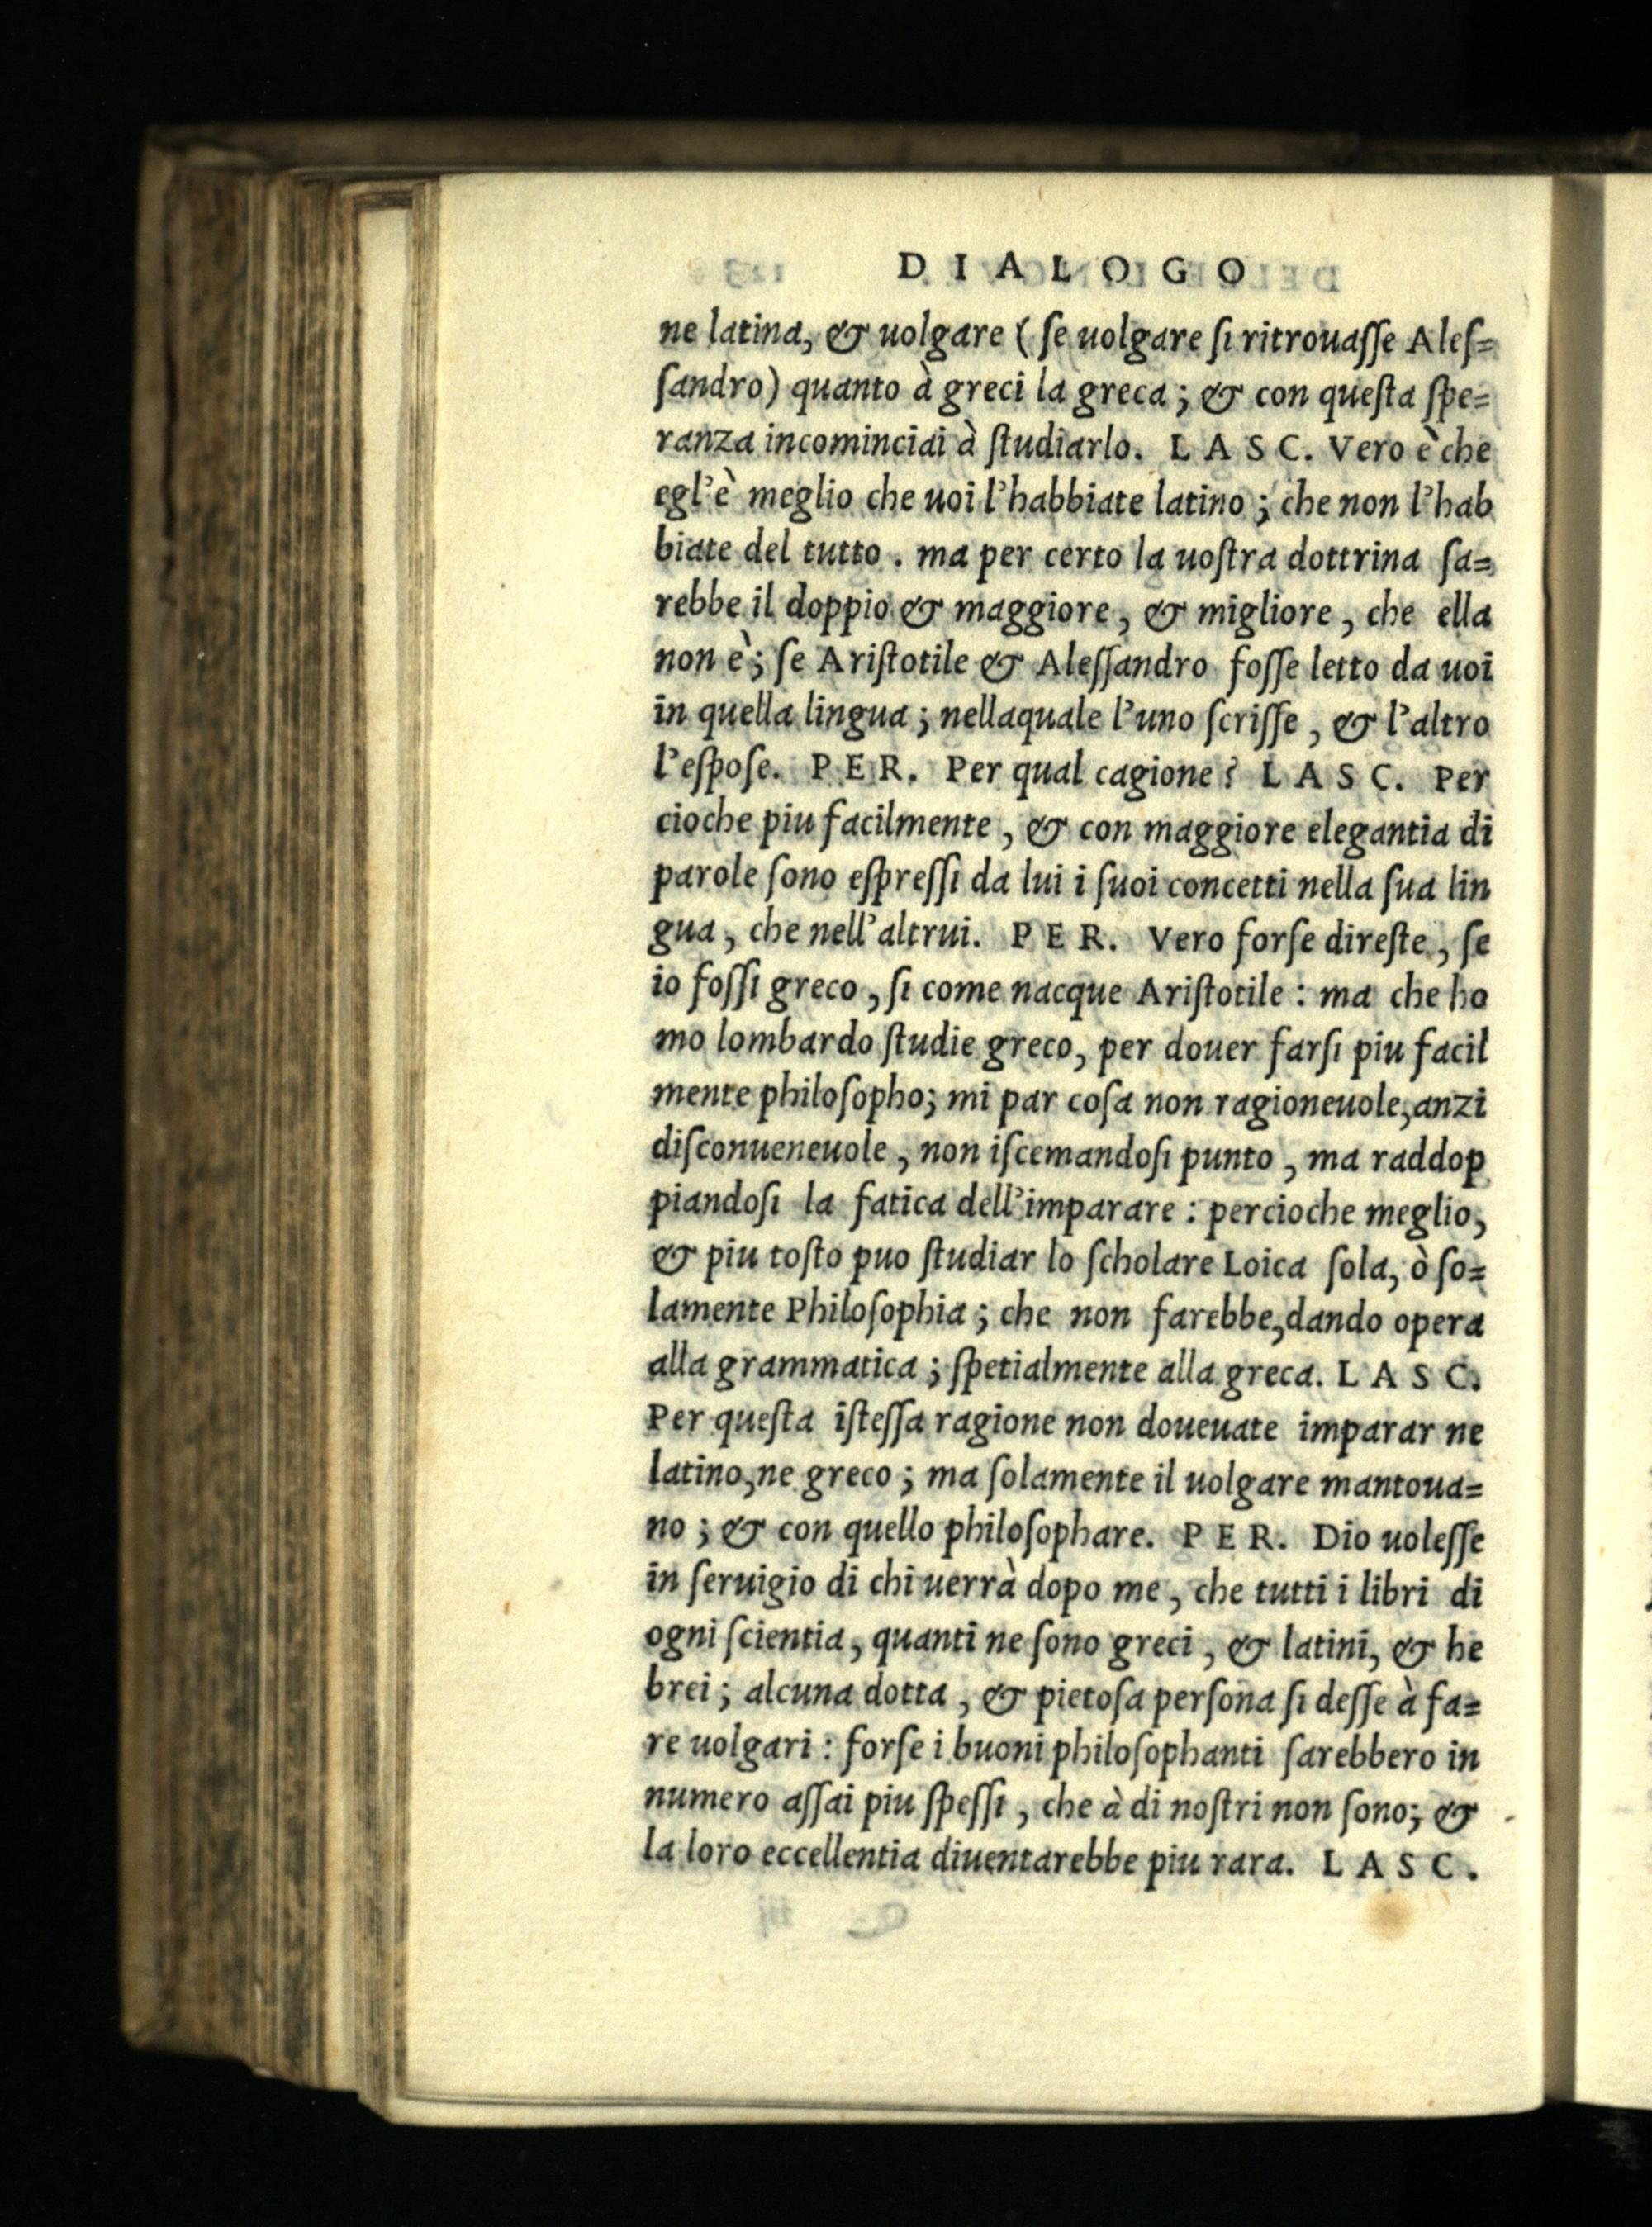 DIALOGO
ne latina, & uolgare (ſe uolgare ſi ritrouaſſe Aleſ=
ſandro) quanto à greci la greca; & con queſta ſpe=
ranza incominciai à ſtudiarlo. LASC. Vero è che
egl'è meglio che uoi l'habbiate latino; che non l'hab
biate del tutto. ma per certo la uoſtra dottrina ſa=
rebbe il doppio & maggiore, & migliore, che ella
non è; ſe Ariſtotile & Aleſſandro foſſe letto da uoi
in quella lingua; nellaquale l'uno ſcriſſe, & l'altro
l'eſpoſe. PER. Per qual cagione? LASC. Per
cioche piu facilmente, & con maggiore elegantia di
parole ſono eſpreſſi da lui i ſuoi concetti nella ſua lin
gua, che nell'altrui. PER. Vero forſe direſte, ſe
io foſſi greco, ſi come nacque Ariſtotile: ma che ho
mo lombardo ſtudie greco, per douer farſi piu facil
mente philoſopho; mi par coſa non ragioneuole, anzi
diſconueneuole, non iſcemandoſi punto, ma raddop
piandoſi la fatica dell'imparare: percioche meglio,
& piu toſto puo ſtudiar lo ſcholare Loica ſola, ò ſo=
lamente Philoſophia; che non farebbe, dando opera
alla grammatica; ſpetialmente alla greca. LASC.
Per queſta iſteſſa ragione non doueuate imparar ne
latino, ne greco; ma ſolamente il uolgare mantoua=
no; & con quello philoſophare. PER. Dio uoleſſe
in ſeruigio di chi uerrà dopo me, che tutti i libri di
ogni ſcientia, quanti ne ſono greci, & latini, & he
brei; alcuna dotta, & pietoſa perſona ſi deſſe à fa=
re uolgari: forſe i buoni philoſophanti ſarebbero in
numero aſſai piu ſpeſſi, che à di noſtri non ſono; &
la loro eccellentia diuentarebbe piu rara. LASC.